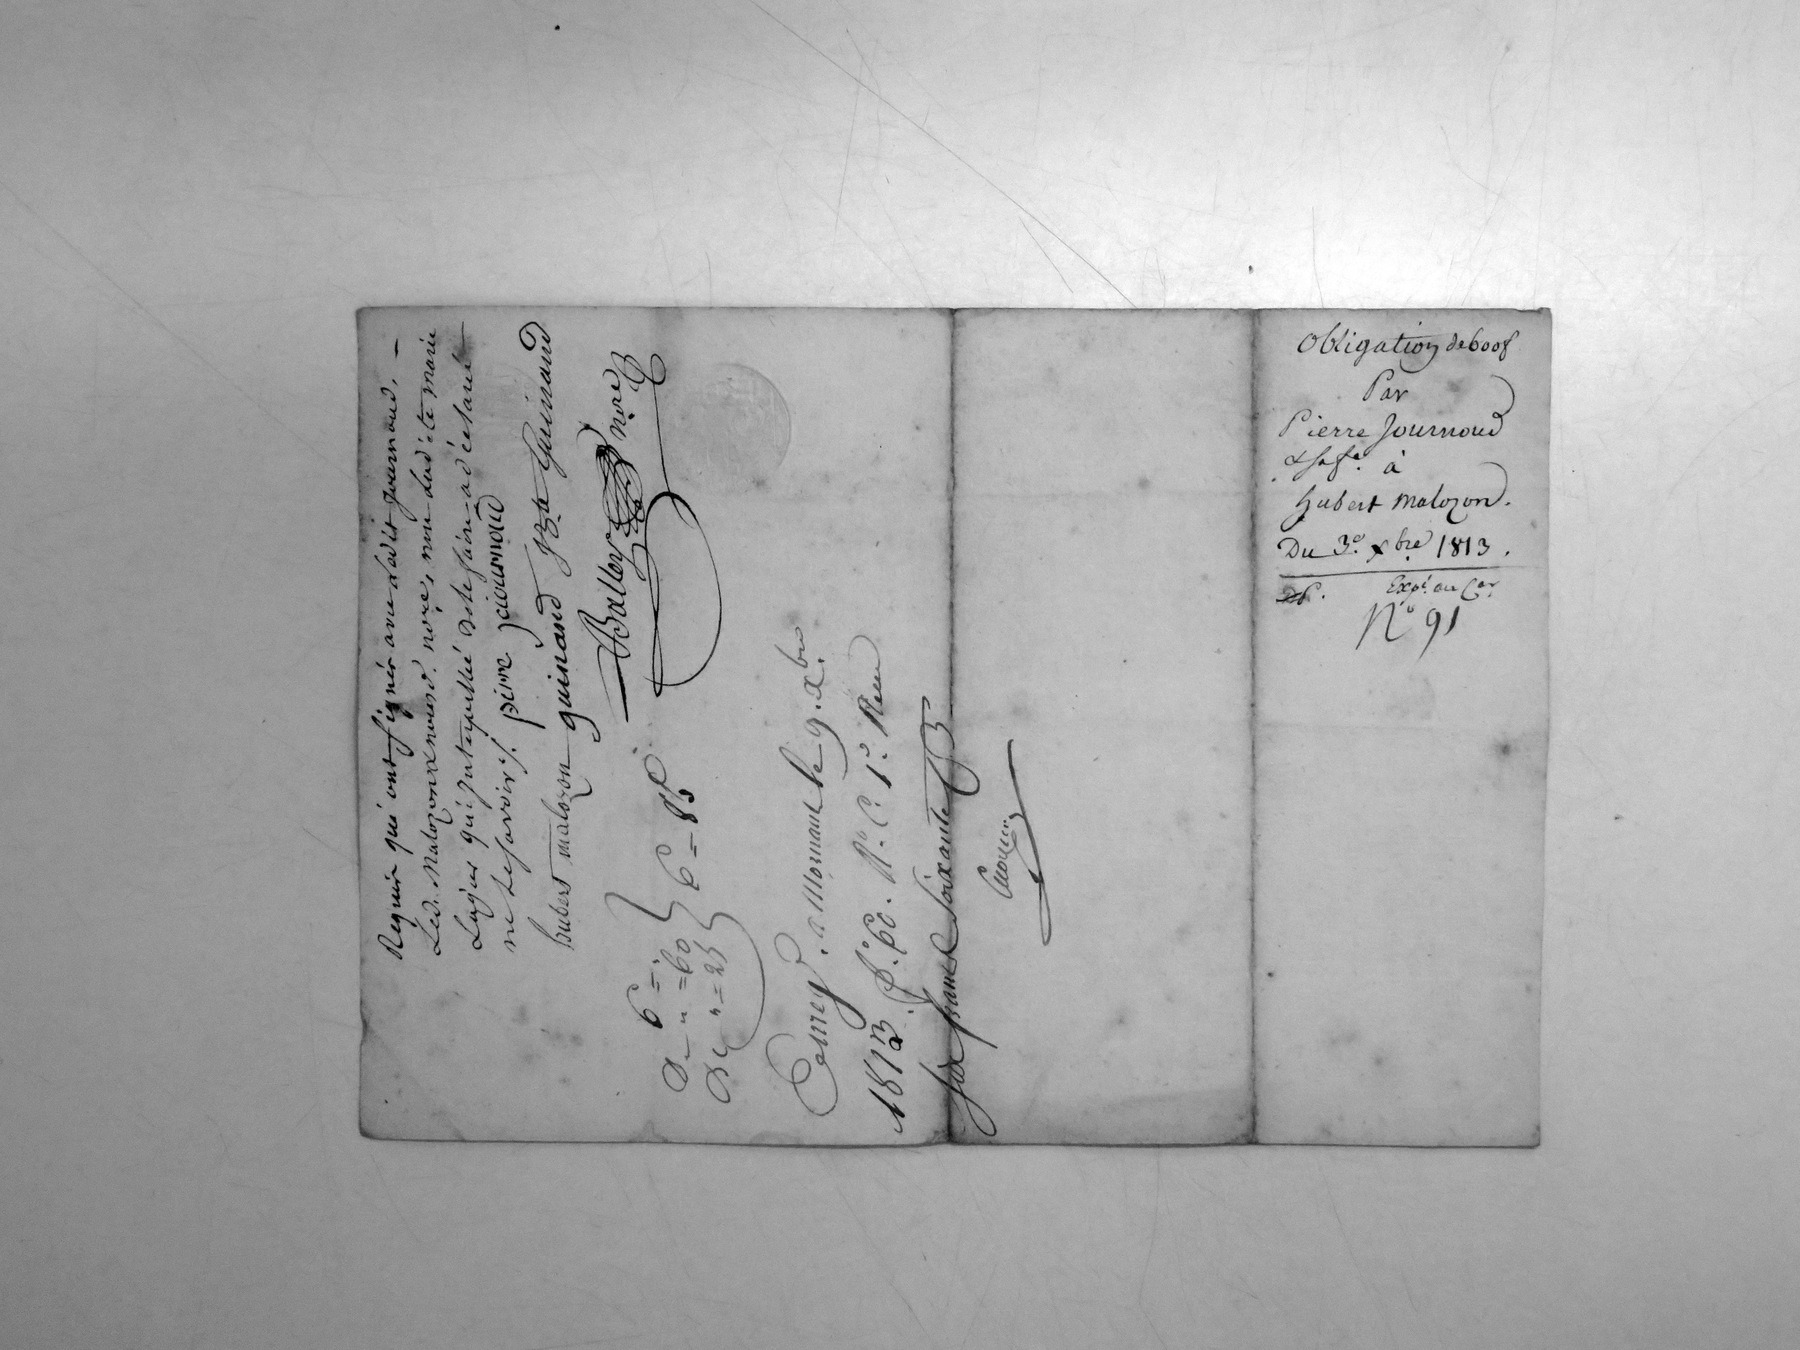 Requis qui ont signés avec ledit Journoud, —
Led. Malozon & nousd. nore, non lad ête marie
qui interpellée de le faire a déclaré —
ne le savoir /. pierre journoud
hubert malozon guinand J.B.te Guinand
Balley nore
D. 6 = „
„ = 60
Dc „ = 23
6 = 83
Enreg.é a Mornant le 9. xbre
1813. f.o 60. R.o C. 1.e Reçu
six francs soixante c.
Obligation de 600f
Par
Pierre Journoud
& sa fe. à
hubert malozon.
Du 3.e xbre 1813.
Exp.é au C.er
N.o 91